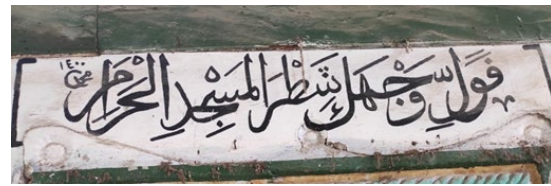 فَوَلِّ وَجْهَكَ شَطْرَ الْمَسْجِدِ الْحَرَامِ
١٤٠٠